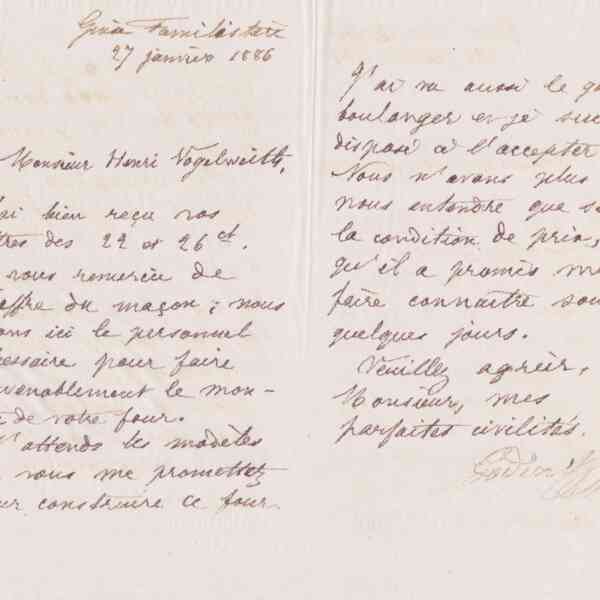 Guise Familistère
27 janvier 1886
Monsieur Henri Vogelweith,
ai bien reçu vos
tres des 22 et 26 ct.
vous remercie de
offre du maçon ; nous
ons ici le personnel
cessaire pour faire
venablement le mon-
de votre four.
J'attends les modèles
vous me promettez
ur construire ce four.
J'ai vu aussi le ga
boulanger et je sui
disposé à l'accepter
Nous n'avons plus
nous entendre que su
la condition de prix,
qu'il a promis me
faire connaître sou
quelques jours.
Veuillez agréer,
Monsieur, mes
parfaites civilités.
Godin